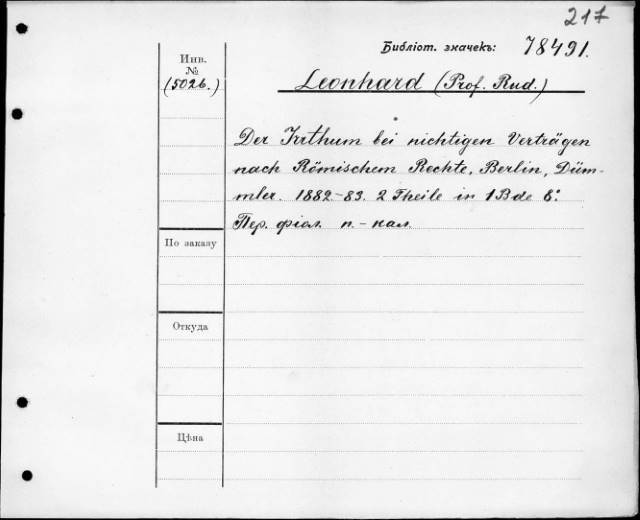 217
Библіот. значекъ: 78491.
Инв.
№
(5026.)
Leonhard (Prof. Rud.)
Der Irrthum bei nichtigen Verträgen
nach Römischem Rechte, Berlin, Düm-
mler. 1882-83. 2 Theile in 1 Bde 8º.
Пер. фіол. п.-кал.
По заказу
Откуда
Цѣна